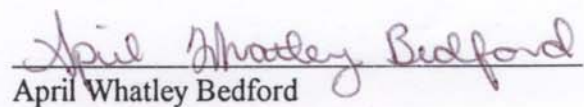 April Whatley Bedford
April Whatley Bedford